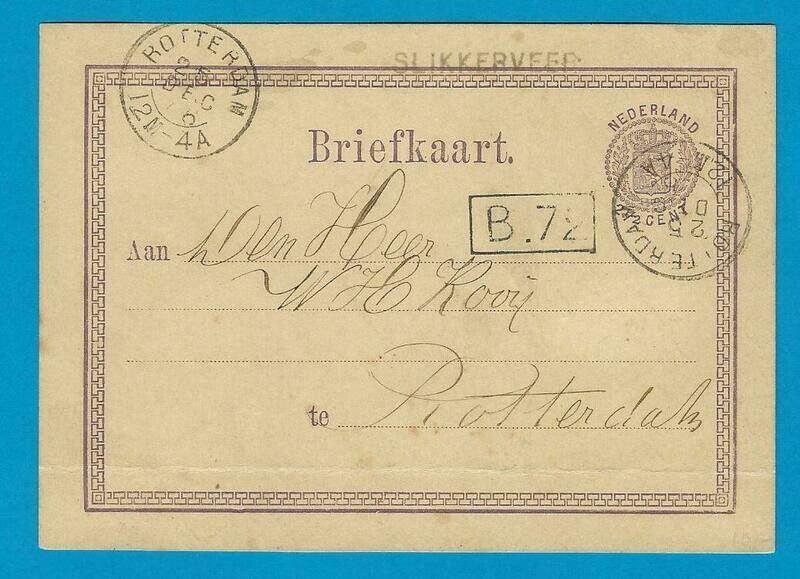 SLIKKERVEER
ROTTERDAM
25
DEC
6
12M-4A
NEDERLAND
2 1/2 CENT
ROTTERDAM
25
D
12M 4A
Briefkaart.
B.72
Aan Den Heer
W H Kooij
te Rotterdam